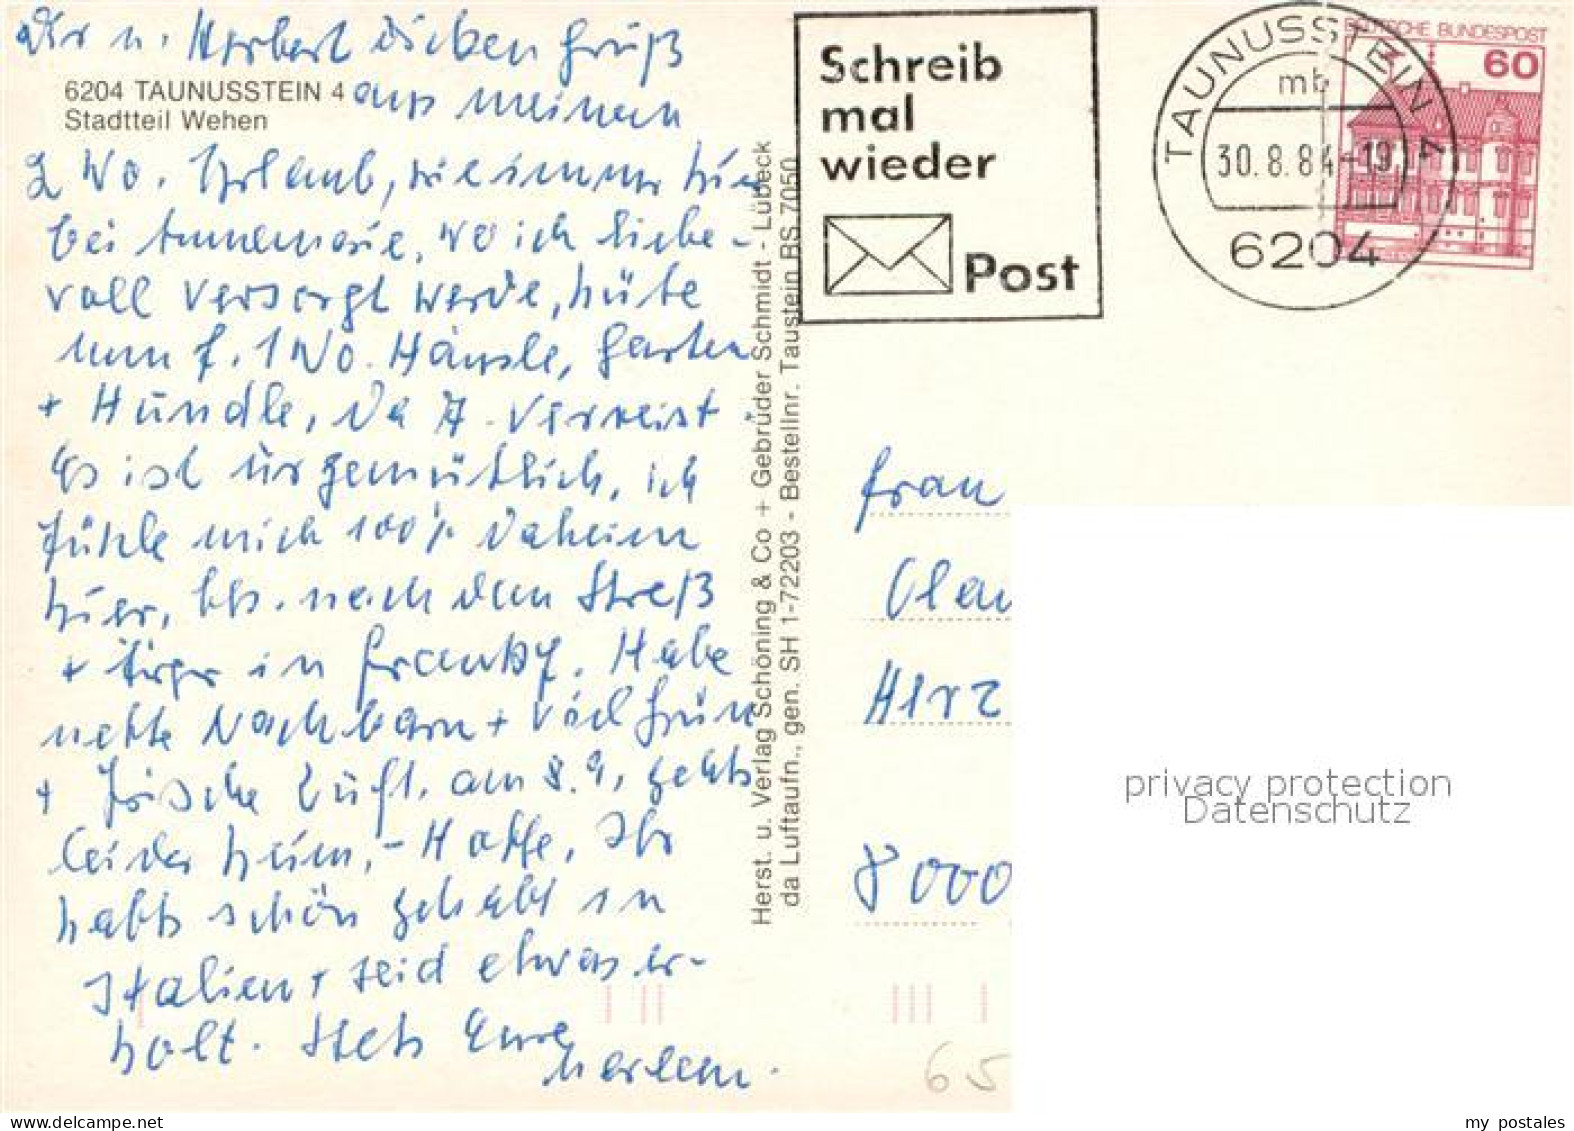 Dir u. Herbert dicken Gruß
6204 TAUNUSSTEIN 4
Stadtteil Wehen
aus meinem
2 Wo. Urlaub, wie immer hier
bei Annemarie, wo ich liebe-
voll versorgt werde, hüte
nun f. 1 Wo. Häusle, Garten
+ Hündle, da A. verreist.
Es ist urgemütlich, ich
fühle mich 100% daheim
hier, bes. nach dem Streß
+ Ärger in
Habe
nette Nachbarn + viel Grün
+ frische Luft. am 8.9. gehts
leider heim, - Hoffe, Ihr
habts schön gehabt in
Italien + seid etwas er-
holt. Stets Eure
Herst. u. Verlag Schöning & Co + Gebrüder Schmidt - Lübeck
da Luftaufn., gen. SH 1-72203 - Bestellnr. Taustein BS 7050
Schreib
mal
wieder
Post
TAUNUSSTEIN 4
mb
30.8.84-19
6204
DEUTSCHE BUNDESPOST
60
Frau
8000
65
privacy protection
Datenschutz
www.delcampe.net
my postales